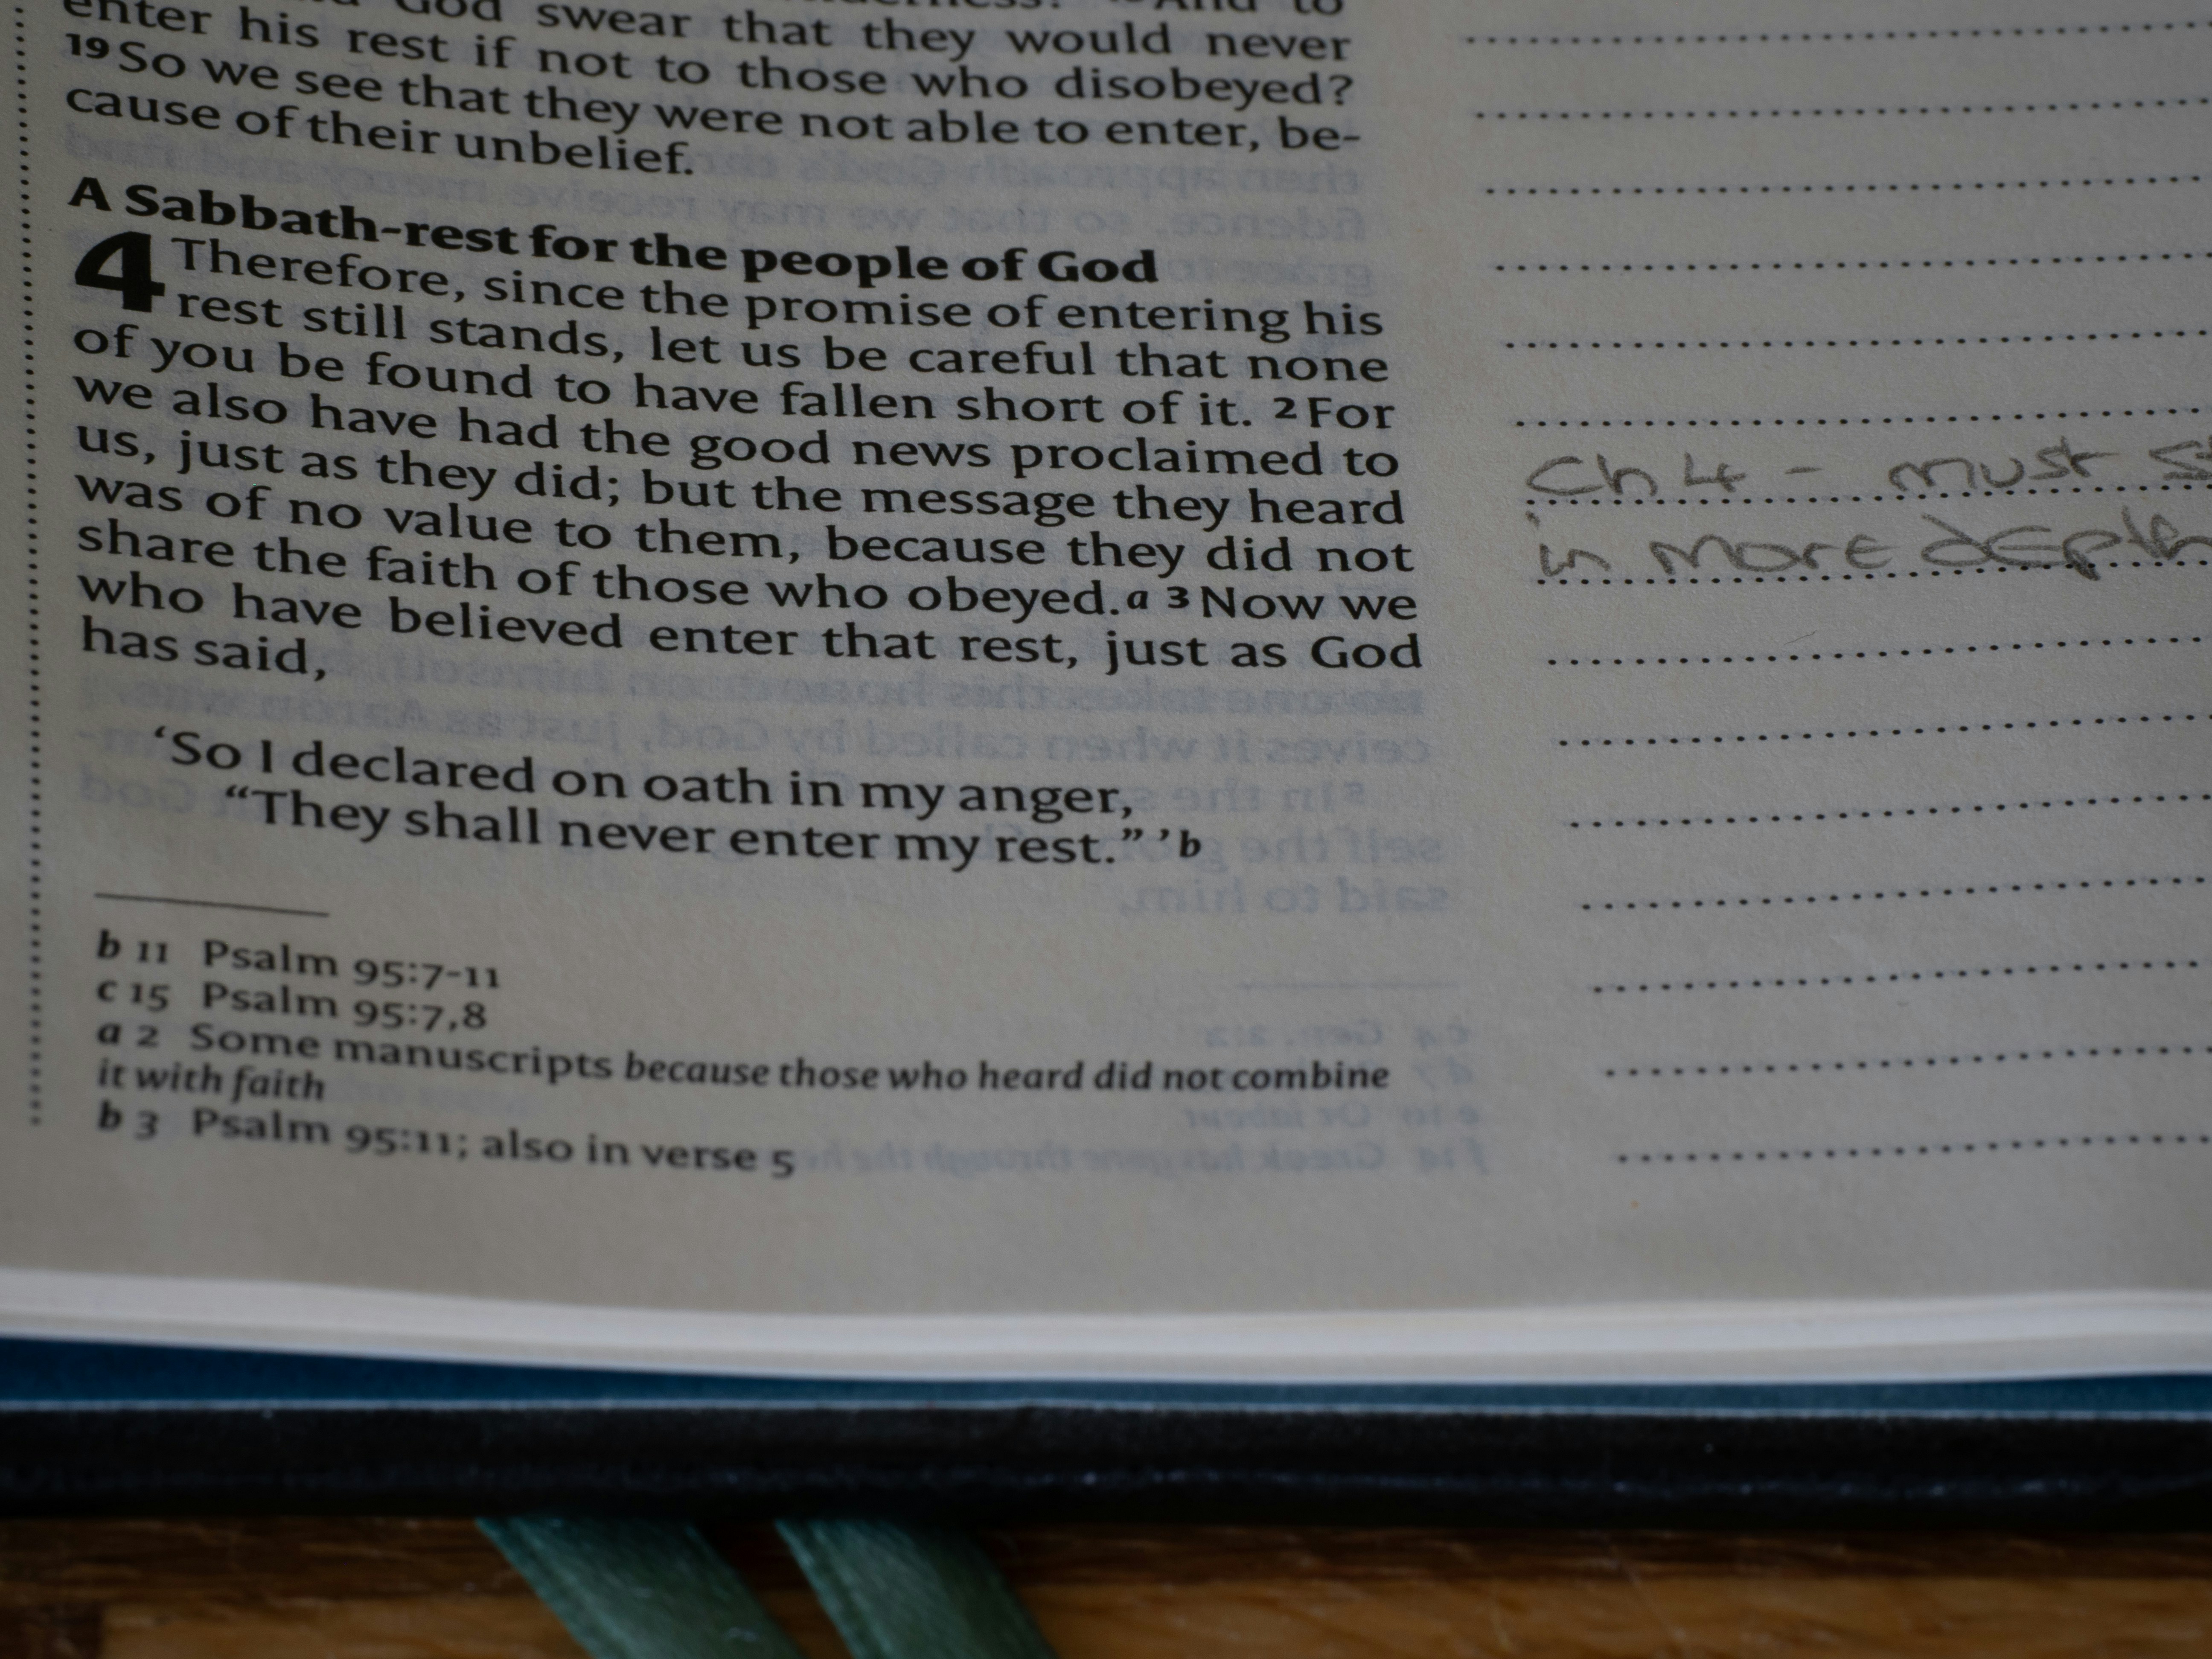 God swear that they would never
enter his rest if not to those who disobeyed?
19 So we see that they were not able to enter, be-
cause of their unbelief.
A Sabbath-rest for the people of God
4 Therefore, since the promise of entering his
rest still stands, let us be careful that none
of you be found to have fallen short of it. 2 For
we also have had the good news proclaimed to
us, just as they did; but the message they heard
was of no value to them, because they did not
share the faith of those who obeyed.a 3 Now we
who have believed enter that rest, just as God
has said,
‘So I declared on oath in my anger,
“They shall never enter my rest.” ’ b
b 11 Psalm 95:7-11
c 15 Psalm 95:7,8
a 2 Some manuscripts because those who heard did not combine
it with faith
b 3 Psalm 95:11; also in verse 5
Ch 4 - must
in more depth